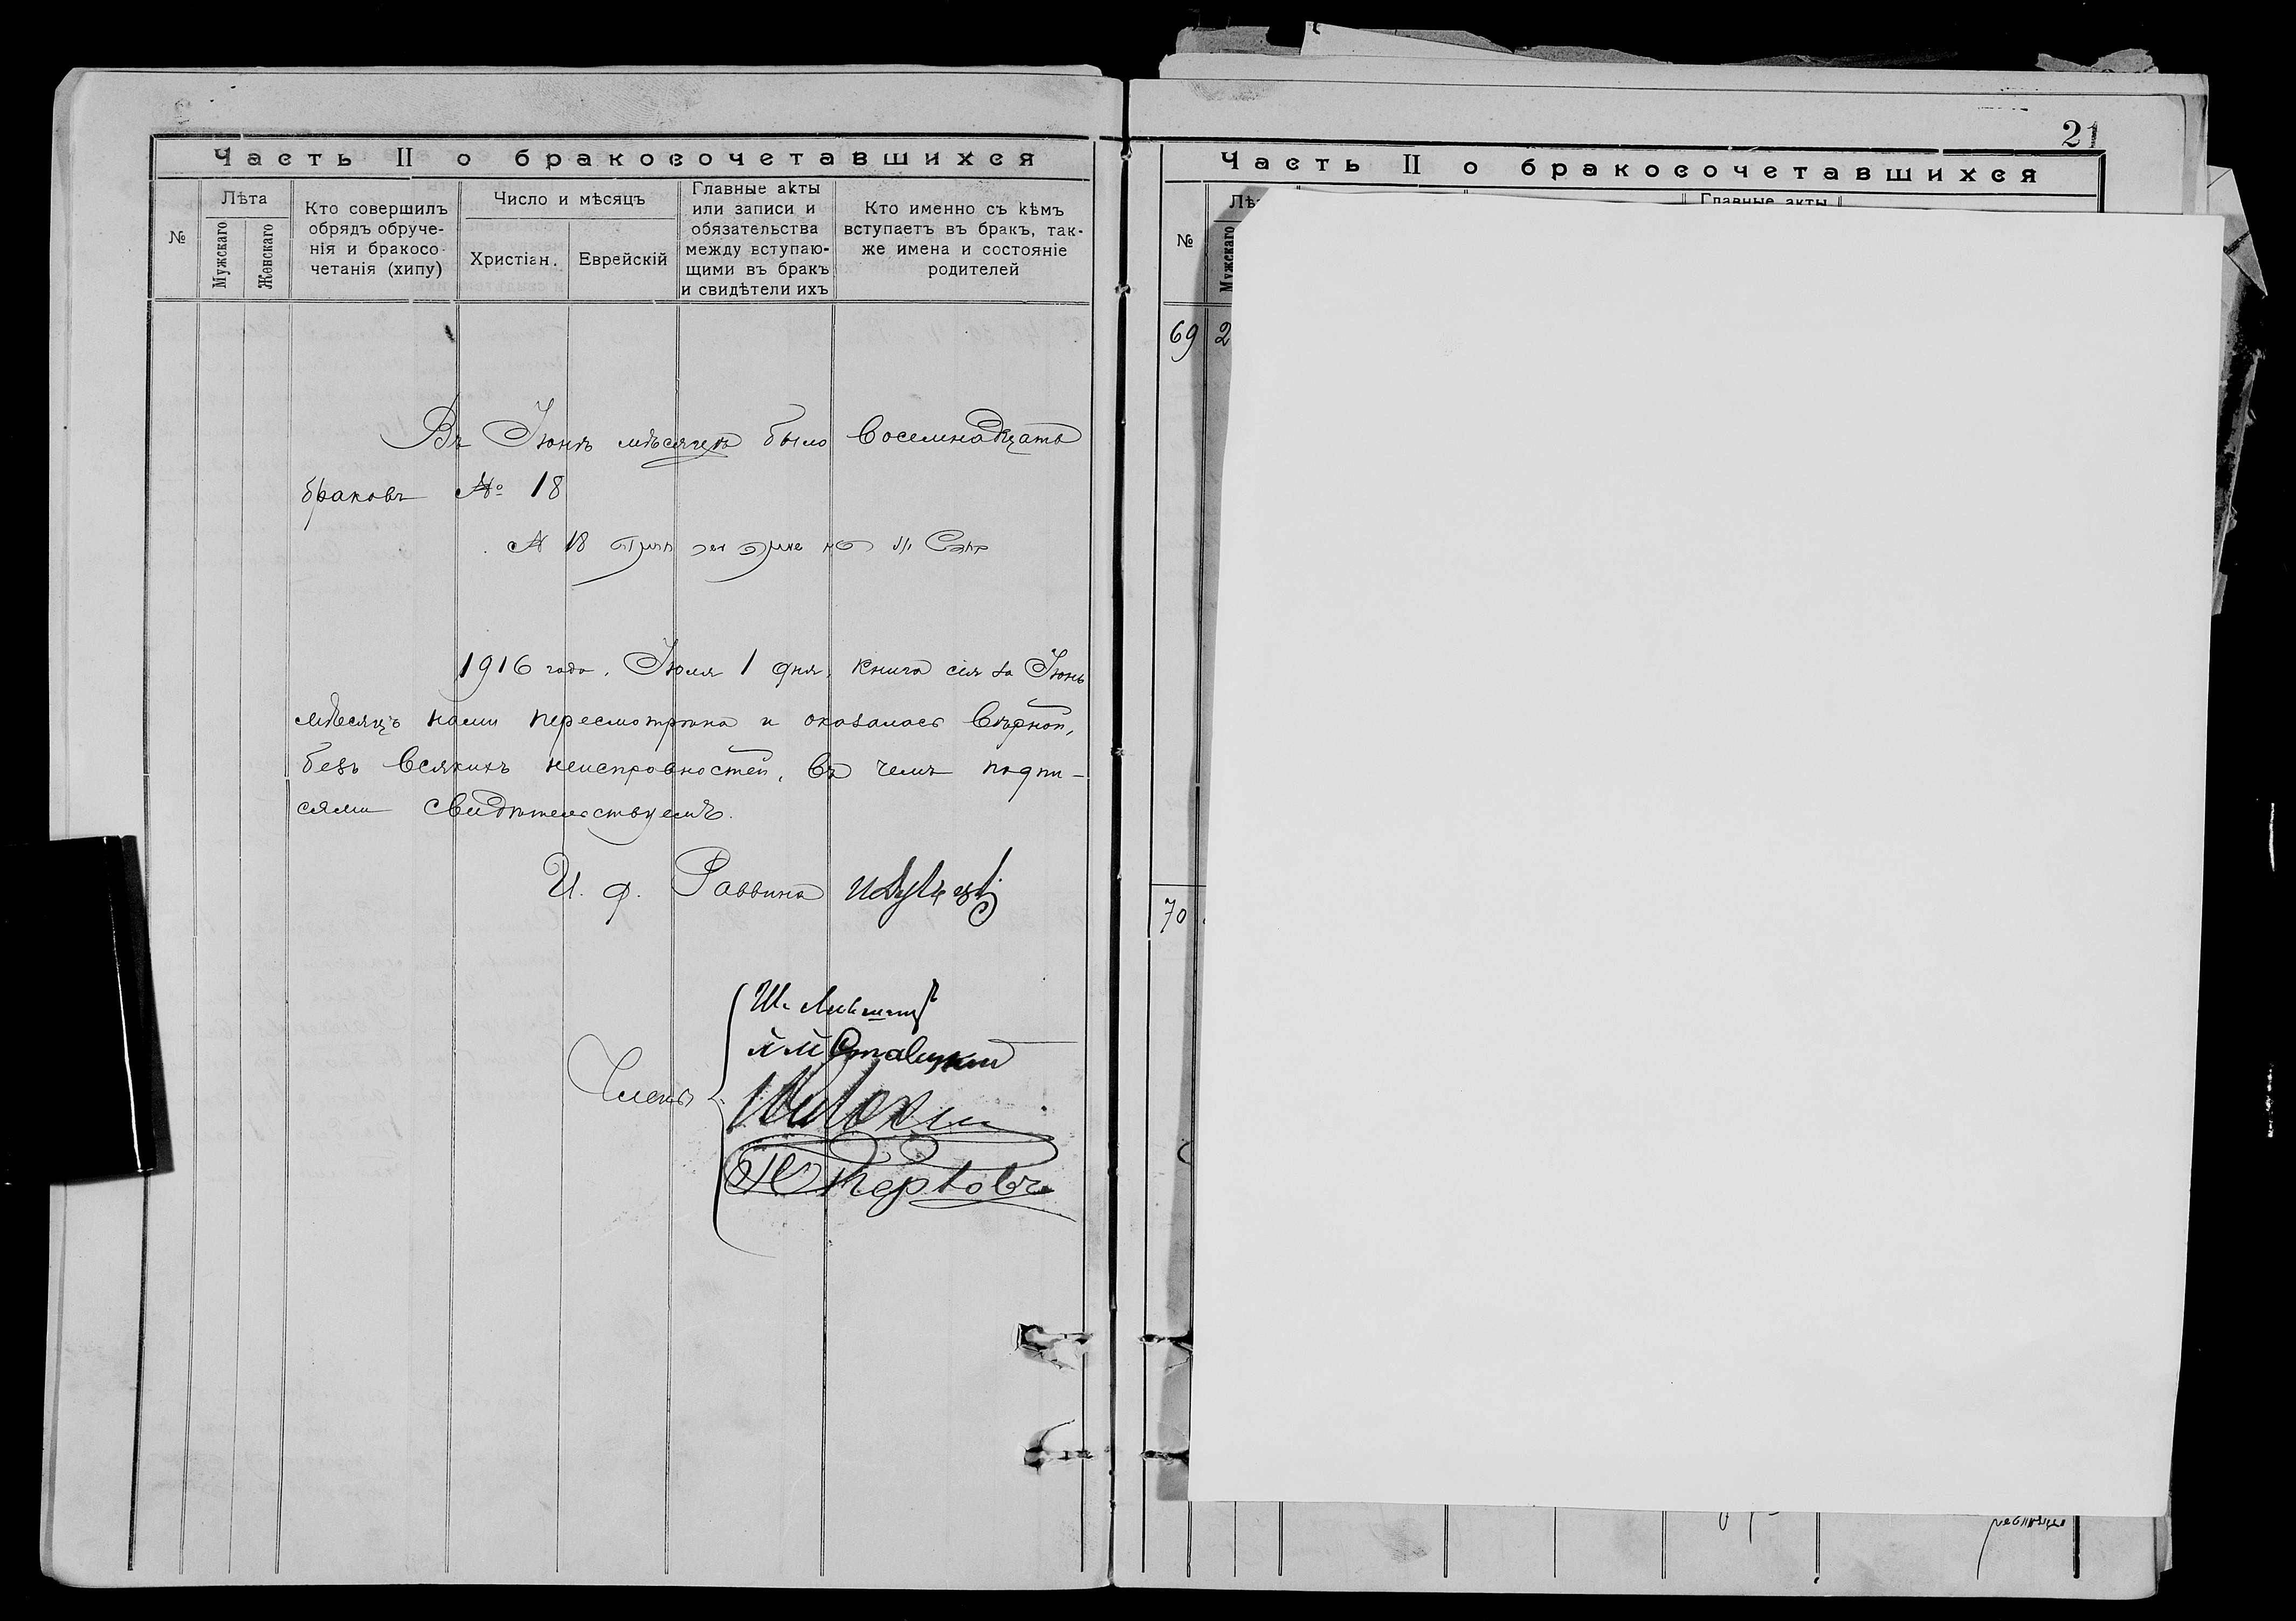 Часть II о бракосочетавшихся
№
Лѣта
Мужскаго
Женскаго
Кто совершилъ
обрядъ обруче-
нія и бракосо-
четанія (хипу)
Число и мѣсяцъ
Христіан.
Еврейскій
Главные акты
или записи и
обязательства
между вступаю-
щими въ бракъ
и свидѣтели ихъ
Кто именно съ кѣмъ
вступаетъ въ бракъ, так-
же имена и состояніе
родителей
Въ Іюнѣ мѣсяцѣ было восемнадцать
браковъ № 18
№ 18
1916 года, Іюля 1 дня, книга сія за Іюнь
мѣсяцъ нами пересмотрѣна и оказалась вѣрной,
безъ всякихъ неисправностей, въ чемъ подпи-
сями свидѣтельствуемъ.
И. ф. Раввина
Члены
21
Часть II о бракосочетавшихся
№
Лѣ
Мужскаго
Главные акты
69 2
70